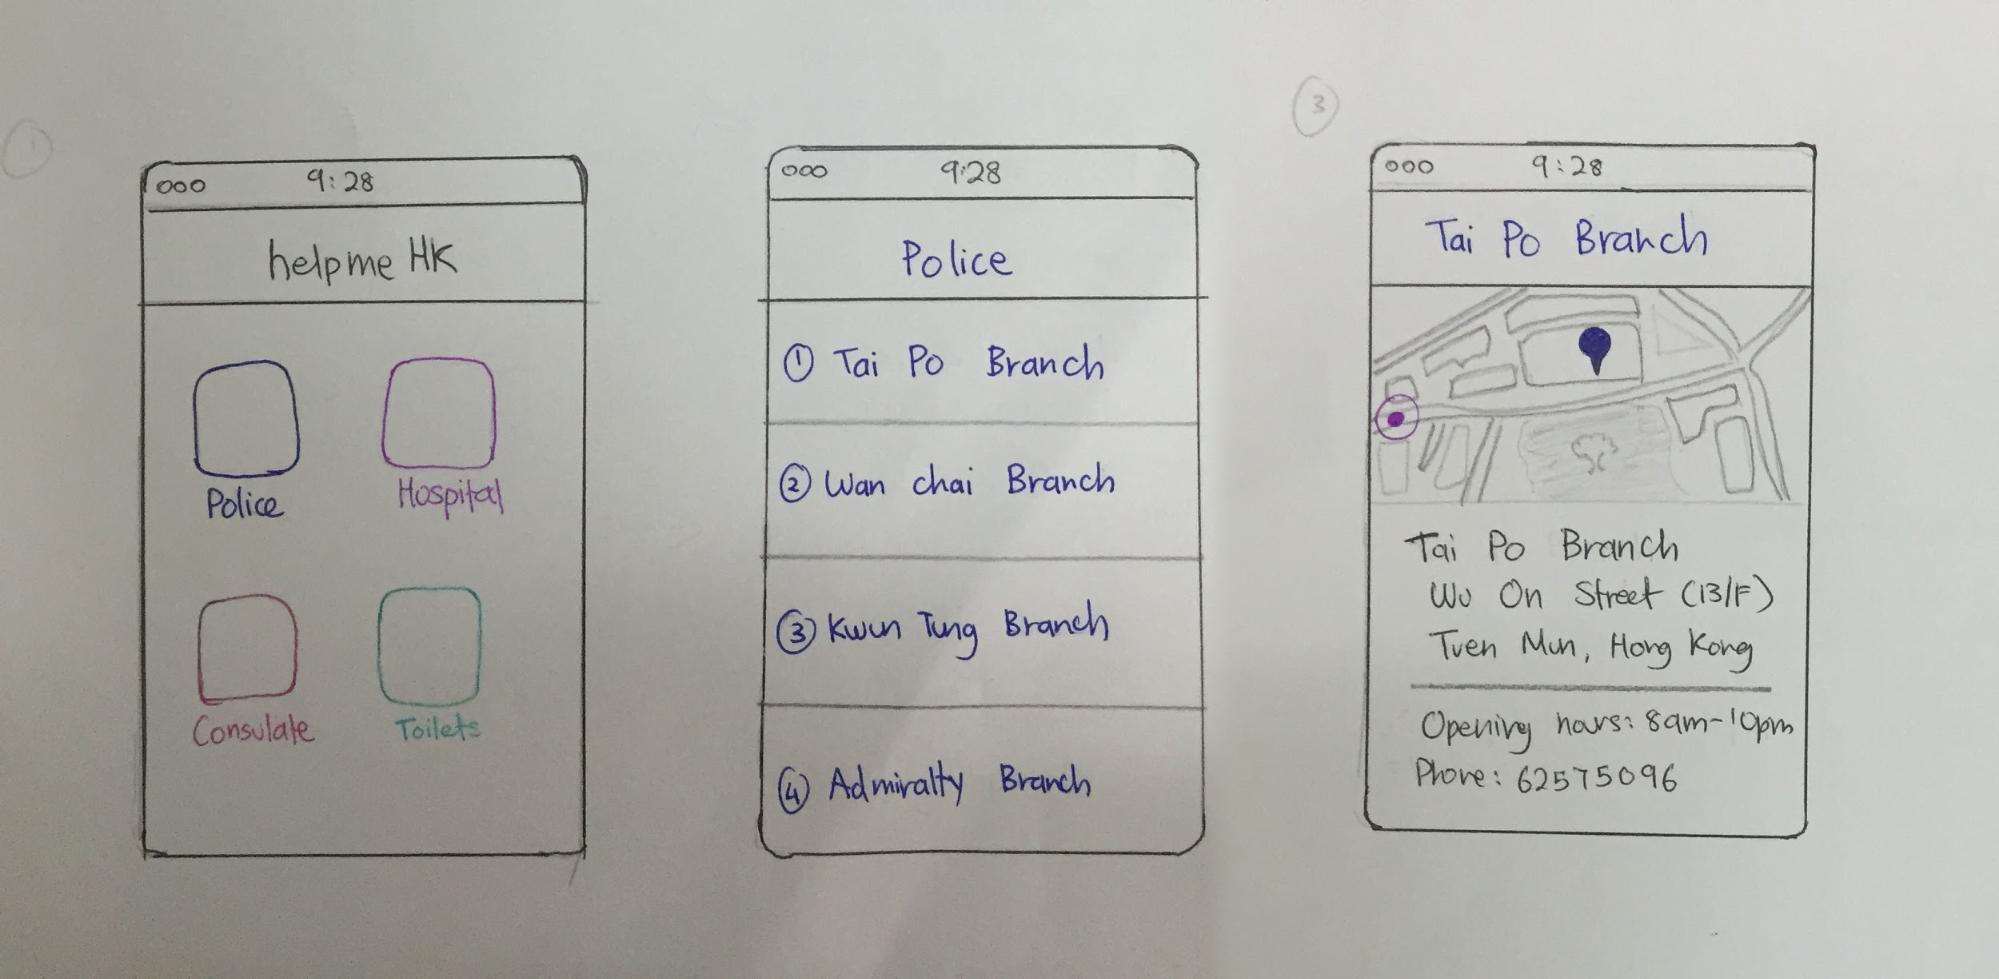 1
ooo 9:28
helpme HK
Police Hospital
Consulate Toilets
ooo 9:28
Police
1 Tai Po Branch
2 Wan chai Branch
3 Kwun Tung Branch
4 Admiralty Branch
3
ooo 9:28
Tai Po Branch
Tai Po Branch
Wu On Street (13/F)
Tuen Mun, Hong Kong
Opening hours: 8am-10pm
Phone: 62575096